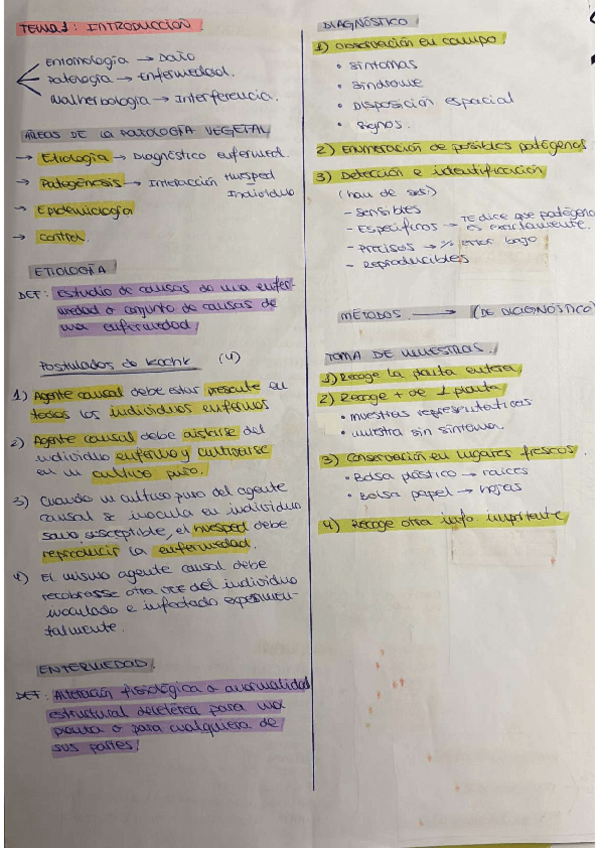 TEMA 1: INTRODUCCIÓN
Entomología → Daño
Patología → Enfermedad.
Malherbología → Interferencia.
ÁREAS DE LA PATOLOGÍA VEGETAL
→ Etiología → Diagnóstico enfermed.
→ Patogénesis → Interacción Huesped
Individuo
→ Epidemiología
→ Control.
ETIOLOGÍA
DEF: Estudio de causas de una enfer-
medad o conjunto de causas de
una enfermedad
Postulados de Kochk (4)
1) Agente causal debe estar presente en
todos los individuos enfermos
2) Agente causal debe aislarse del
individuo enfermo y cultivarse
en un cultivo puro.
3) Cuando un cultivo puro del agente
causal se inocula en individuo
sano susceptible, el huesped debe
reproducir la enfermedad.
4) El mismo agente causal debe
recobrasse otra vez del individuo
inoculado e infectado experimen-
talmente.
ENFERMEDAD
DEF: Alteración fisiológica o anormalidad
estructural deletérea para una
planta o para cualquiera de
sus partes
DIAGNÓSTICO
1) Observación en campo
• Síntomas
• Síndrome
• Disposición espacial
• Signos.
2) Enumeración de posibles patógenos
3) Detección e identificación
(han de ser)
- Sensibles
- Específicos → Te dice que patógeno
es exactamente.
- Precisos → % error bajo
- Reproducibles
MÉTODOS → (DE DIAGNÓSTICO)
TOMA DE MUESTRAS.
1) Recoge la planta entera
2) Recoge + de 1 planta
• muestras representativas
• muestra sin síntomas
3) Conservación en lugares frescos.
• Bolsa plástico → raíces
• Bolsa papel → hojas
4) Recoge otra info importante